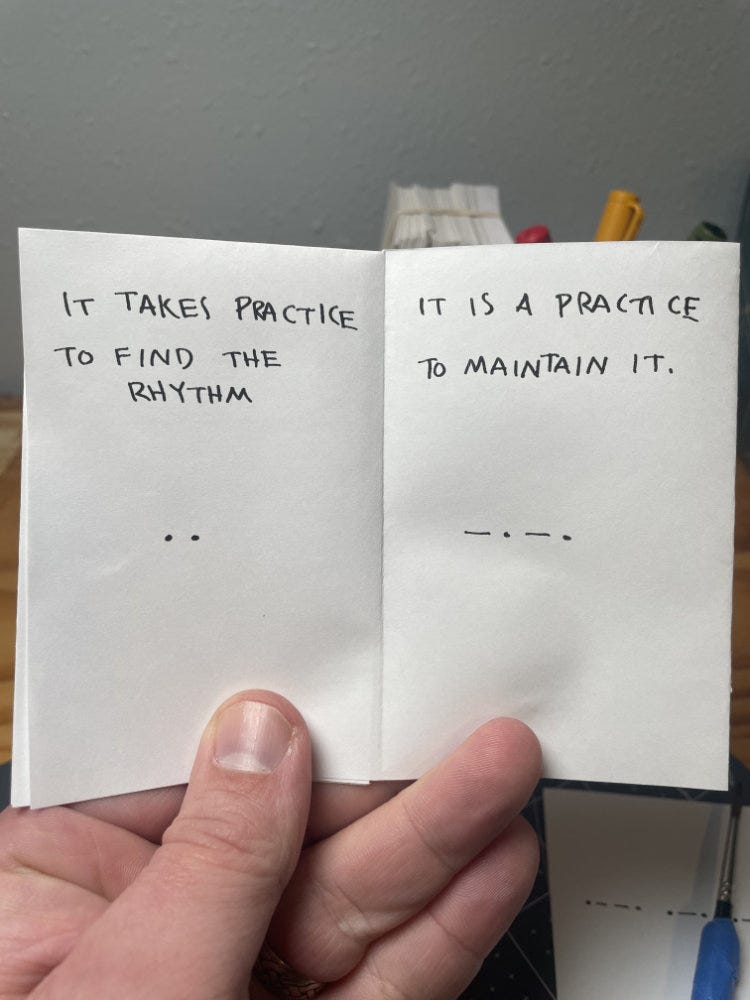 IT TAKES PRACTICE
TO FIND THE
RHYTHM
. .
IT IS A PRACTICE
TO MAINTAIN IT.
— . — .